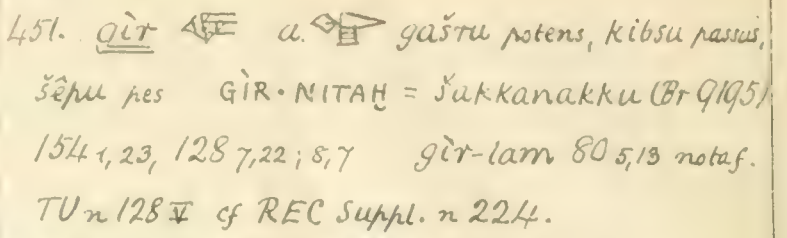 451. gìr a. gašru potens, kibsu passus,
šêpu pes GÌR•NITAḪ = šakkanakku (Br 9195)
154 1,23, 128 7,22; 8,7 gìr-lam 80 5,13 nota f.
TU n 128 V cf REC Suppl. n 224.